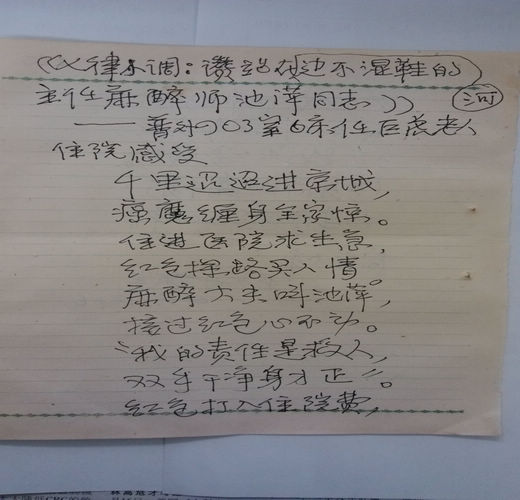 《七律不调：讚站在河边不湿鞋的
主任麻醉师池萍同志》
——普外903室6床任巨虎老人
住院感受
千里迢迢进京城，
病魔缠身全家惊。
住进医院求生急，
红包探路买人情。
麻醉大夫叫池萍，
接过红包心不动。
“我的责任是救人，
双手干净身才正”。
红包打入住院费，